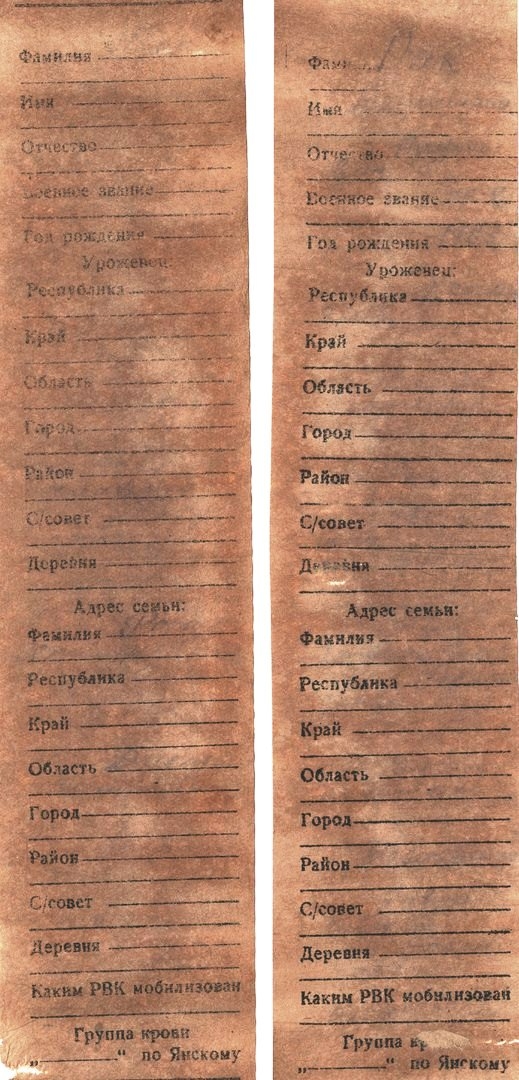 Фамилия
Имя
Отчество
Военное звание
Год рождения
Уроженец:
Республика
Край
Область
Город
Район
С/совет
Деревня
Адрес семьи:
Фамилия
Республика
Край
Область
Город
Район
С/совет
Деревня
Каким РВК мобилизован
Группа крови
„ “ по Янскому
Фамилия
Имя
Отчество
Военное звание
Год рождения
Уроженец:
Республика
Край
Область
Город
Район
С/совет
Деревня
Адрес семьи:
Фамилия
Республика
Край
Область
Город
Район
С/совет
Деревня
Каким РВК мобилизован
Группа
„ “ по Янскому